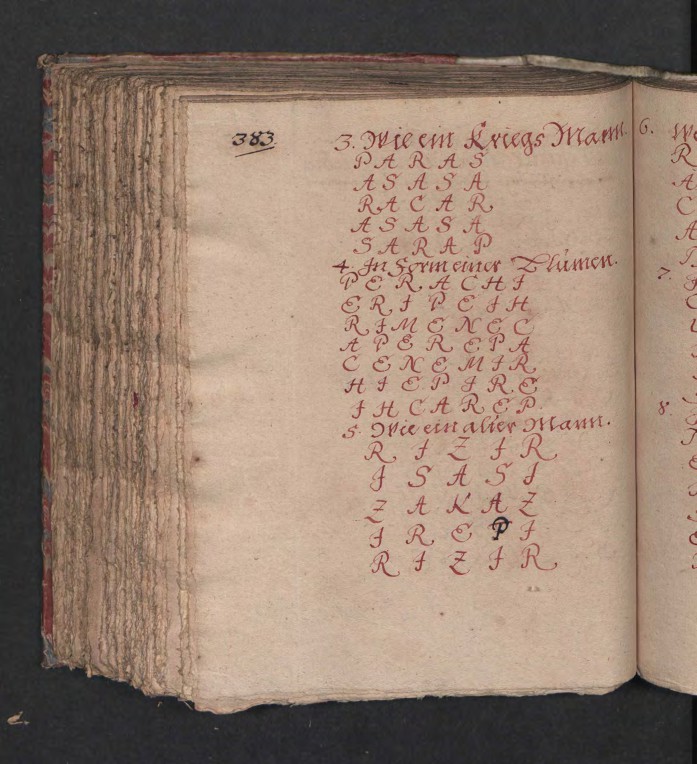 383.
3. Wie ein Kriegs Mann.
P A R A S
A S A S A
R A C A R
A S A S A
S A R A P
4. In Form einer Blumen.
P E R A C H I
E R I P E I H
R I M E N E C
A P E R E P A
C E N E M I R
H I E P I R E
I H C A R E P
5. Wie ein alter Mann.
R I Z I R
I S A S I
Z A K A Z
I R E P I
R I Z I R
6.
R
A
C
A
7.
8.